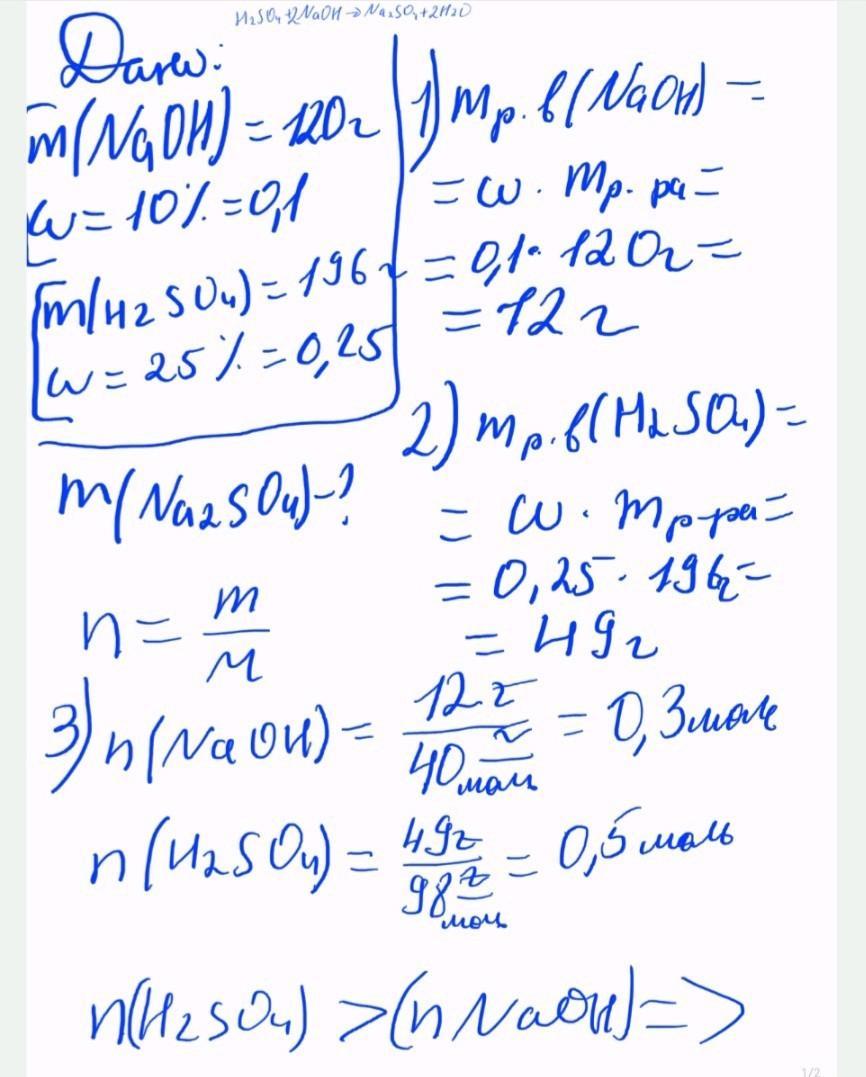 H₂SO₄+2NaOH→Na₂SO₄+2H₂O
Дано:
m(NaOH)=120г
ω=10%=0,1
m(H₂SO₄)=196г
ω=25%=0,25
m(Na₂SO₄)-?
n=m/M
1) mр.в(NaOH)=
=ω·mр-ра=
=0,1·120г=
=12г
2) mр.в(H₂SO₄)=
=ω·mр-ра=
=0,25·196г=
=49г
3) n(NaOH)=12г/40г/моль=0,3моль
n(H₂SO₄)=49г/98г/моль=0,5моль
n(H₂SO₄)>(nNaOH)=>
1/2